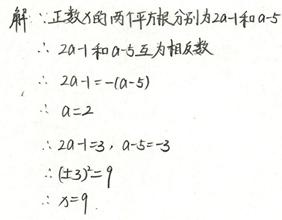 解：∵正数x的两个平方根分别为2a-1和a-5
∴ 2a-1和a-5互为相反数
∴ 2a-1=-(a-5)
∴ a=2
∴ 2a-1=3，a-5=-3
∴ (±3)²=9
∴ x=9